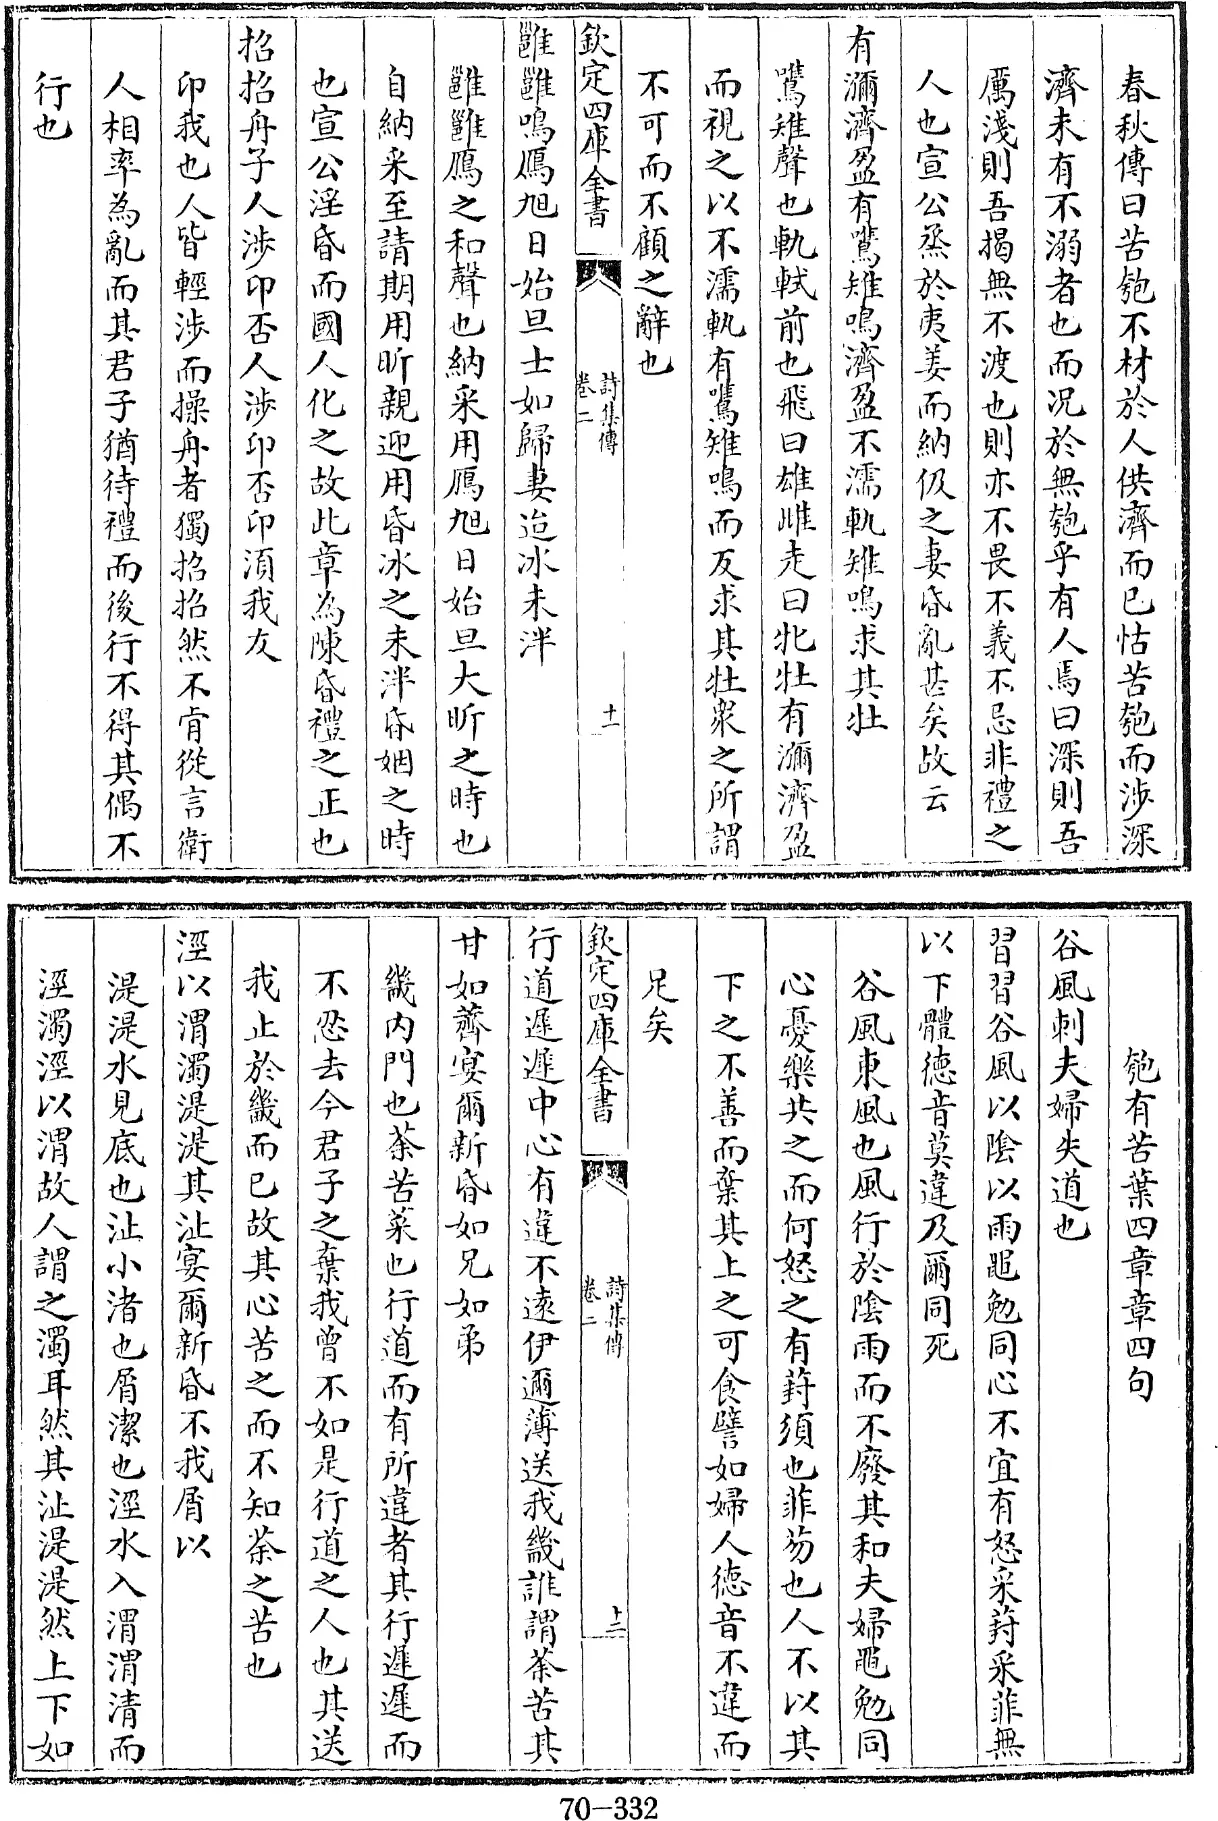 春秋傳曰苦匏不材於人供濟而已怙苦匏而涉深
濟未有不溺者也而况於無匏乎有人焉曰深則吾
厲淺則吾揭無不渡也則亦不畏不義不忌非禮之
人也宣公烝於夷姜而納伋之妻昏亂甚矣故云
有瀰濟盈有鷕雉鳴濟盈不濡軌雉鳴求其牡
鷕雉聲也軌軾前也飛曰雄雌走曰牝牡有瀰濟盈
而視之以不濡軌有鷕雉鳴而反求其牡衆之所謂
不可而不顧之辭也
欽定四庫全書
詩集傳
卷二
十一
雝雝鳴鴈旭日始旦士如歸妻迨冰未泮
雝雝鴈之和聲也納采用鴈旭日始旦大昕之時也
自納采至請期用昕親迎用昏冰之未泮昏姻之時
也宣公淫昏而國人化之故此章為陳昏禮之正也
招招舟子人涉卬否人涉卬否卬湏我友
卬我也人皆輕涉而操舟者獨招招然不肯從言衛
人相率為亂而其君子猶待禮而後行不得其偶不
行也
匏有苦葉四章章四句
谷風刺夫婦失道也
習習谷風以隂以雨黽勉同心不宜有怒采葑采菲無
以下體德音莫違及爾同死
谷風東風也風行於隂雨而不廢其和夫婦黽勉同
心憂樂共之而何怒之有葑須也菲芴也人不以其
下之不善而棄其上之可食譬如婦人德音不違而
足矣
欽定四庫全書
詩集傳
卷二
十二
行道遲遲中心有違不逺伊邇薄送我畿誰謂荼苦其
甘如薺宴爾新昏如兄如弟
畿内門也荼苦菜也行道而有所違者其行遲遲而
不忍去今君子之棄我曾不如是行道之人也其送
我止於畿而已故其心苦之而不知荼之苦也
涇以渭濁湜湜其沚宴爾新昏不我屑以
湜湜水見底也沚小渚也屑潔也涇水入渭渭清而
涇濁涇以渭故人謂之濁耳然其沚湜湜然上下如
70-332